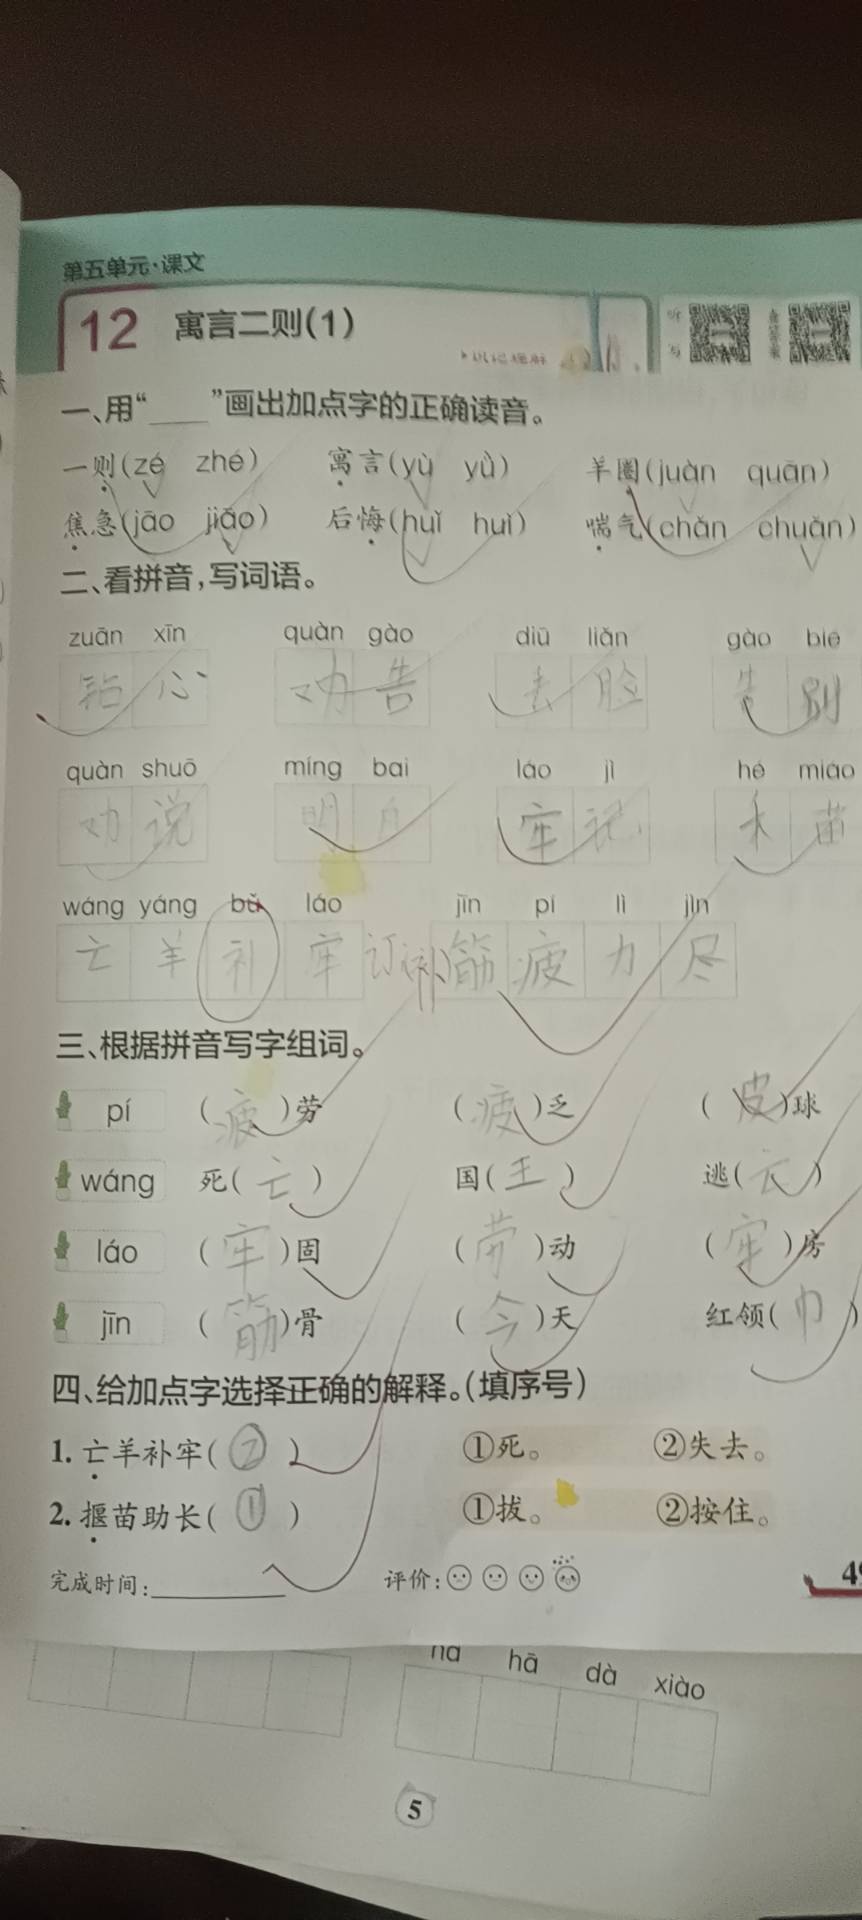 第五单元·课文
12 寓言二则(1)
听写
一、用“____”画出加点字的正确读音。
一则(zé zhé) 寓言(yù yǜ) 羊圈(juàn quān)
焦急(jāo jiāo) 后悔(huǐ huì) 喘气(chǎn chuǎn)
二、看拼音,写词语。
zuān xīn quàn gào diū liǎn gào bié
钻 心 劝 告 丢 脸 告 别
quàn shuō míng bai láo jì hé miáo
劝 说 明 白 牢 记 禾 苗
wáng yáng bǔ láo jīn pí lì jìn
亡 羊 补 牢 订 补 筋 疲 力 尽
三、根据拼音写字组词。
pí (疲)劳 (疲)乏 (皮)球
wáng 死(亡) 国(王) 逃(亡)
láo (牢)固 (劳)动 (牢)房
jīn (筋)骨 (今)天 红领(巾)
四、给加点字选择正确的解释。(填序号)
1. 亡羊补牢(②) ①死。 ②失去。
2. 揠苗助长(①) ①拔。 ②按住。
完成时间:________ 评价:
hā dà xiào
5